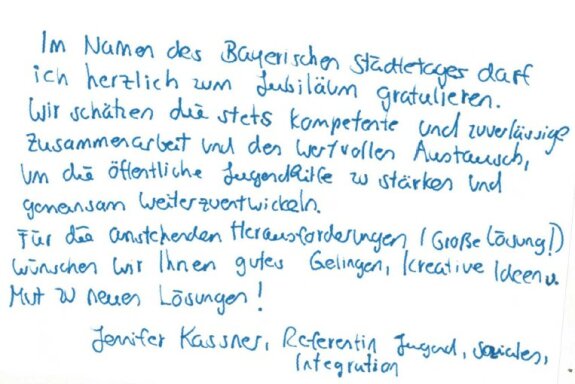 Im Namen des Bayerischen Städtetages darf
ich herzlich zum Jubiläum gratulieren.
Wir schätzen die stets kompetente und zuverlässige
Zusammenarbeit und den wertvollen Austausch,
um die öffentliche Jugendhilfe zu stärken und
gemeinsam weiterzuentwickeln.
Für die anstehenden Herausforderungen (Große Lösung!)
wünschen wir Ihnen gutes Gelingen, kreative Ideen u.
Mut zu neuen Lösungen!
Jennifer Kassner, Referentin Jugend, Soziales,
Integration